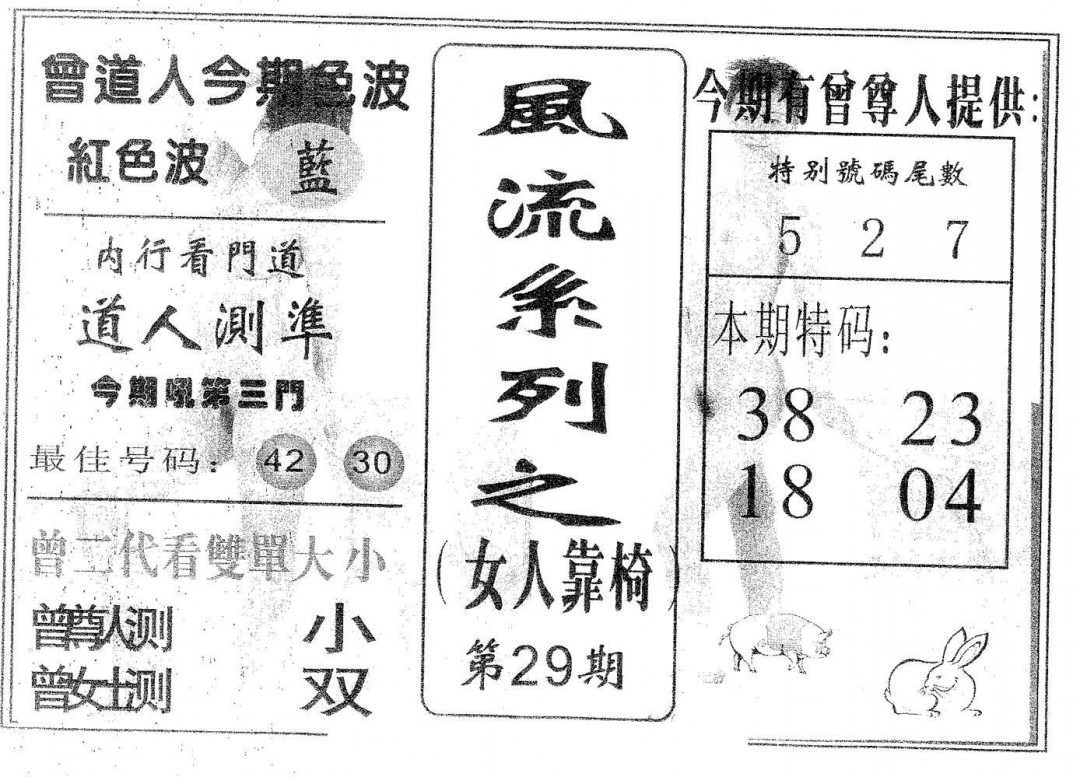 曾道人今期色波
紅色波 藍
内行看門道
道人測準
今期吼第三門
最佳号码： 42 30
曾二代看雙單大小
曾尊人测 小
曾女士测 双
風流系列之
（女人靠椅）
第29期
今期有曾尊人提供：
特别號碼尾數
5 2 7
本期特码：
38 23
18 04